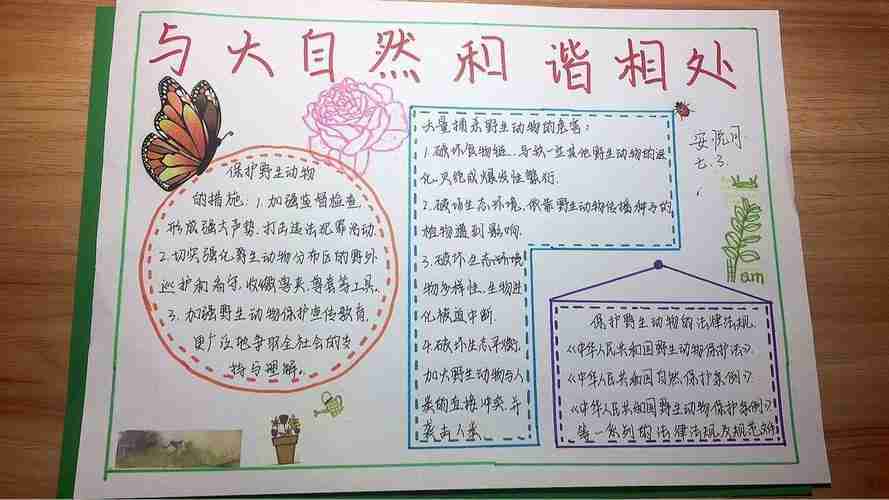 与大自然和谐相处
保护野生动物
的措施：1.加强监督检查，
形成强大声势，打击违法犯罪活动。
2.切实强化野生动物分布区的野外
巡护和看守，收缴鸟夹、兽套等工具。
3.加强野生动物保护宣传教育，
更广泛地争取全社会的支
持与理解。
大量捕杀野生动物的危害：
1.破坏食物链，导致一些其他野生动物的退
化，只能成爆发性繁衍.
2.破坏生态环境，依靠野生动物传播种子的
植物遭到影响.
3.破坏生态环境
物多样性、生物进
化被迫中断.
4.破坏生态平衡，
加大野生动物与人
类的直接冲突，并
袭击人类.
安悦月
七.3.
am
保护野生动物的法律法规.
《中华人民共和国野生动物保护法》.
《中华人民共和国自然保护条例》.
《中华人民共和国野生动物保护条例》
等一系列的法律法规及规范文件